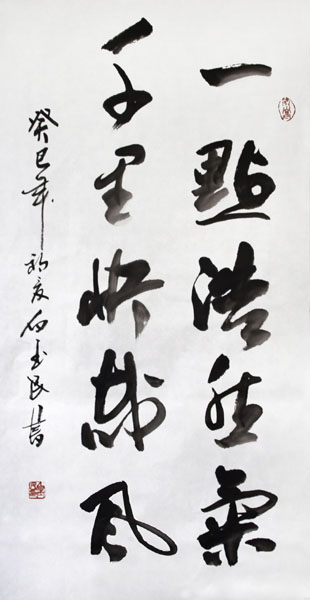 一點浩然氣
千里快哉風
癸巳年初夏石玉民書